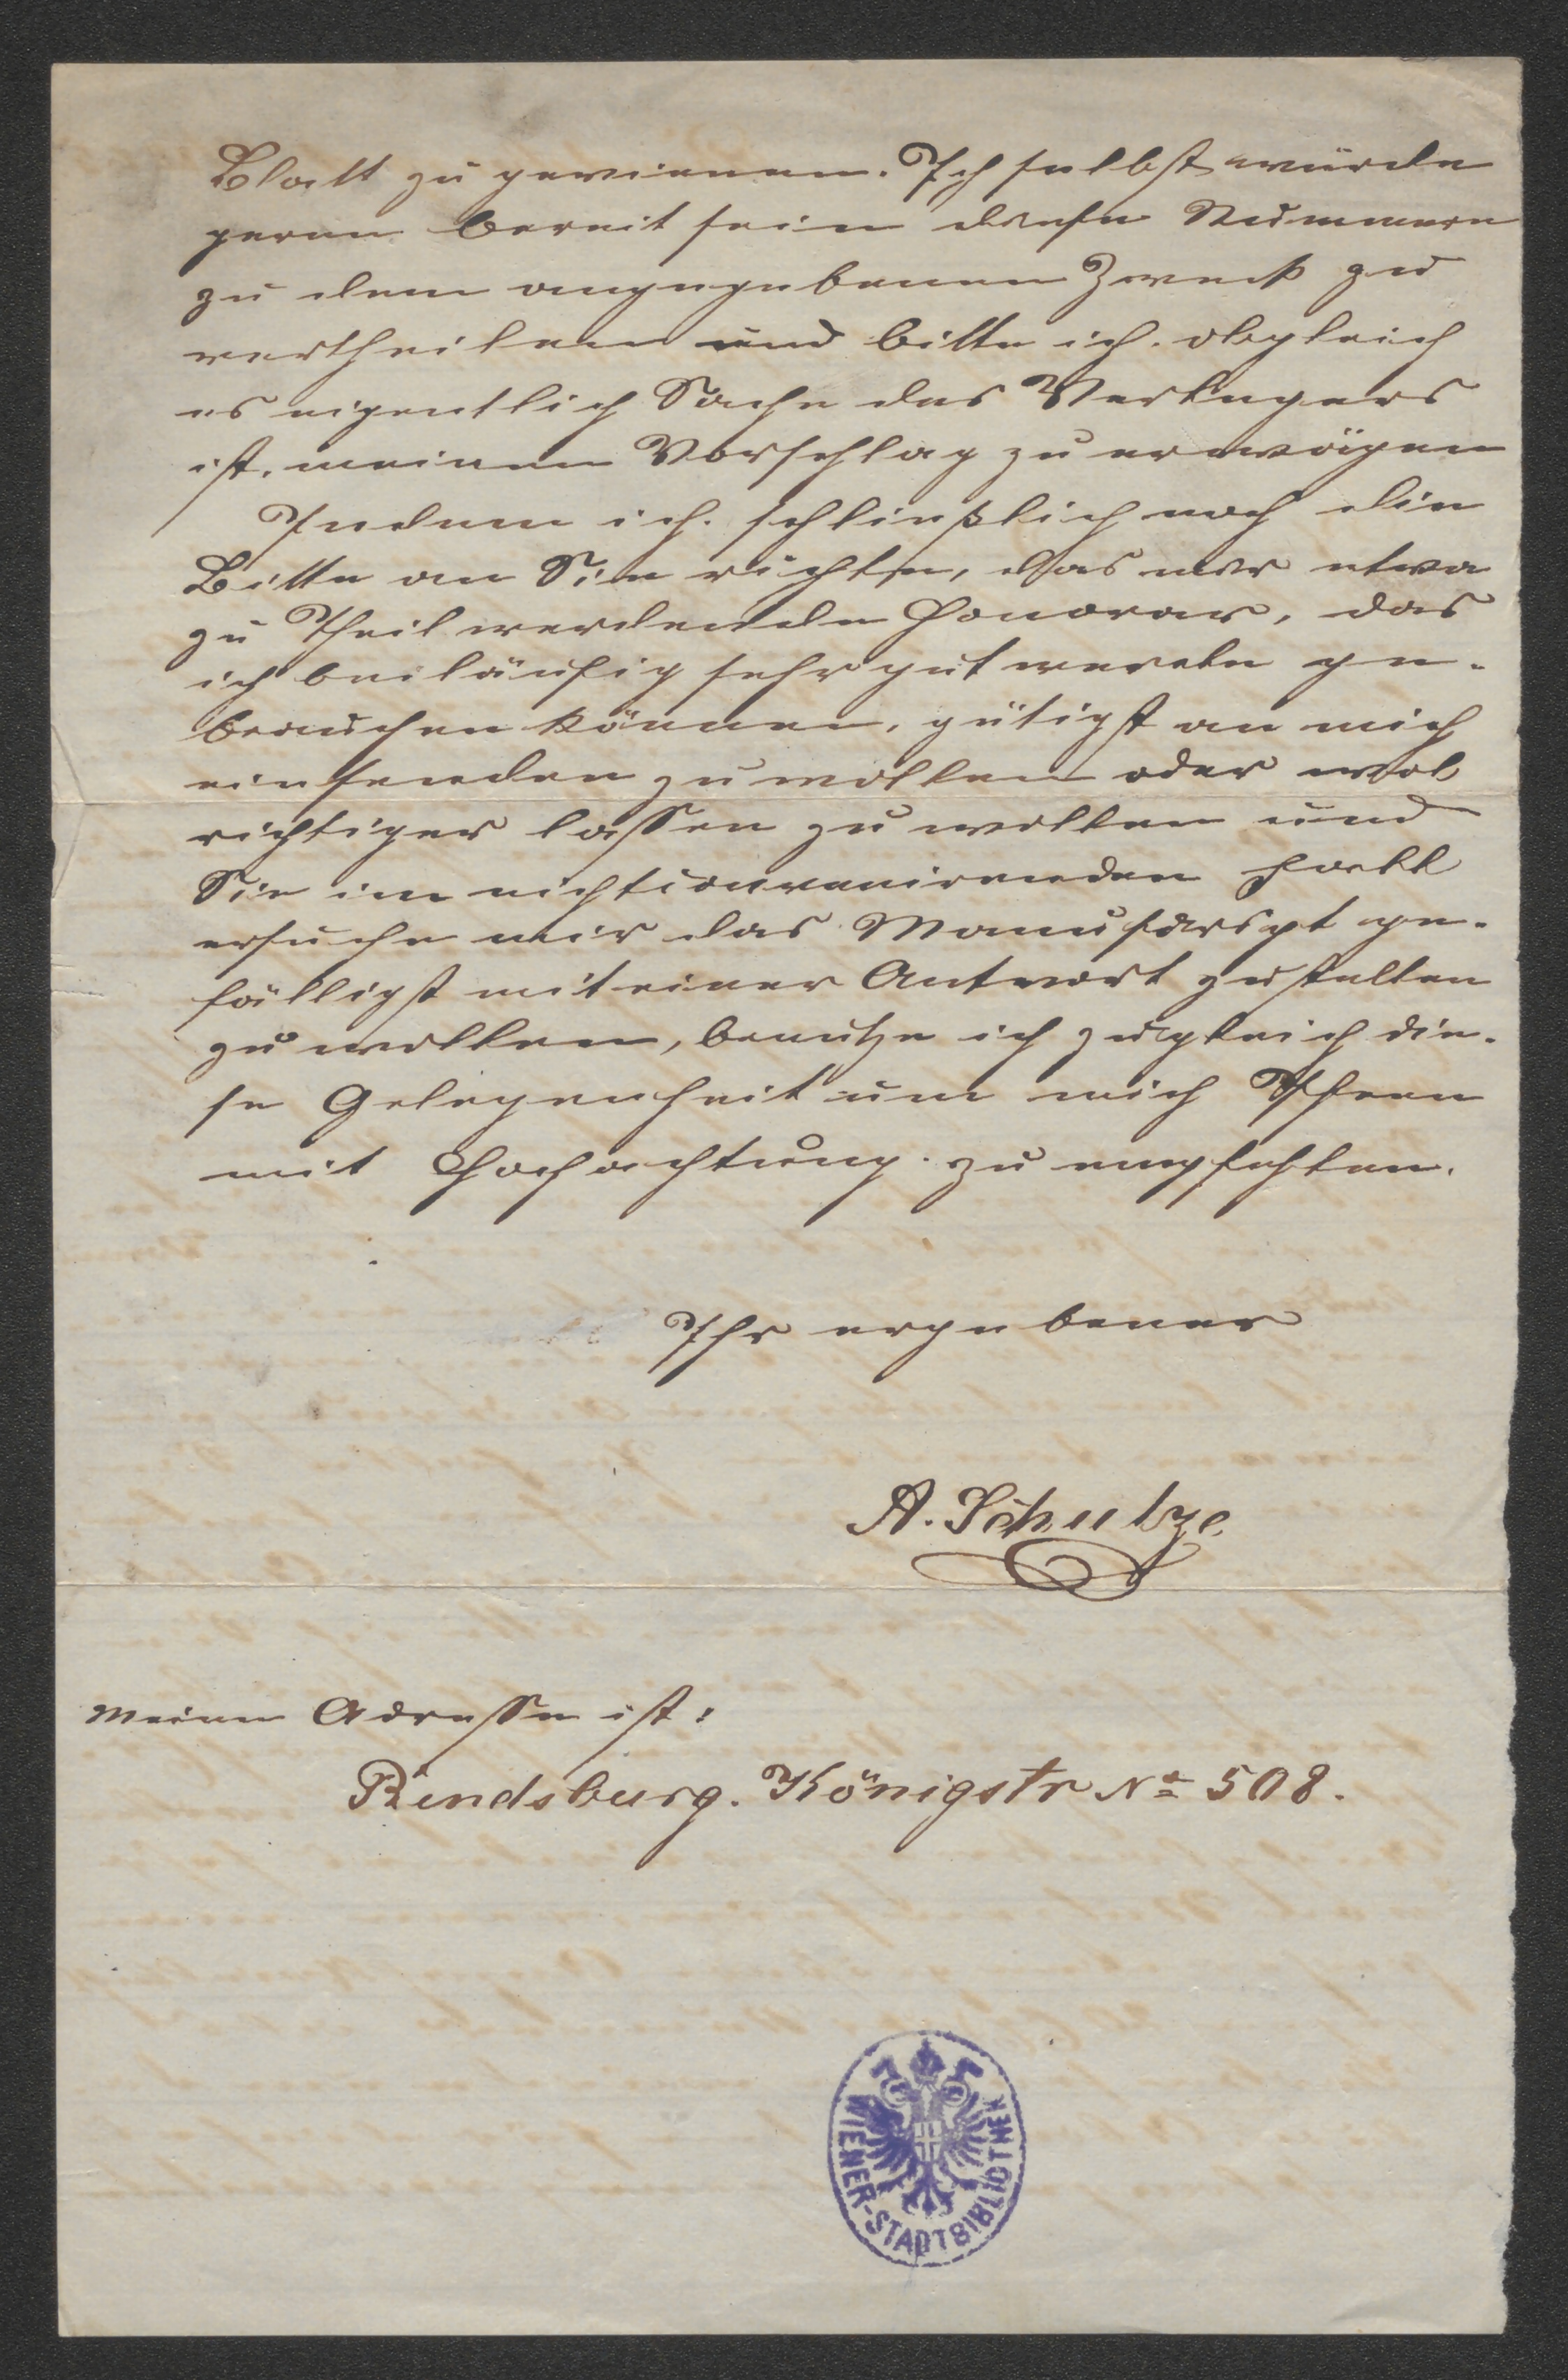 Blatt zu gewinnen. Ich selbst würde
gerne bereit sein diese Nummern
zu dem angegebenen Zweck zu
vertheilen und bitte ich obgleich
es eigentlich Sache des Verlegers
ist, meinen Vorschlag zu erwägen
Indem ich schließlich noch die
Bitte an Sie richte, das mir etwa
zu Theil werdende Honorar, das
ich beiläufig sehr gut werde ge-
brauchen können, gütigst an mich
einsenden zu wollen oder wol
richtiger lassen zu wollen und
Sie im nichtconvenirenden Fall
ersuche mir das Manuscript ge-
fälligst mit einer Antwort zustellen
zu wollen, benutze ich zugleich die-
se Gelegenheit um mich Ihnen
mit Hochachtung zu empfehlen.
Ihr ergebener
A. Schultze
Meine Adresse ist:
Rendsburg. Königstr No 508.
WIENER-STADTBIBLIOTHEK